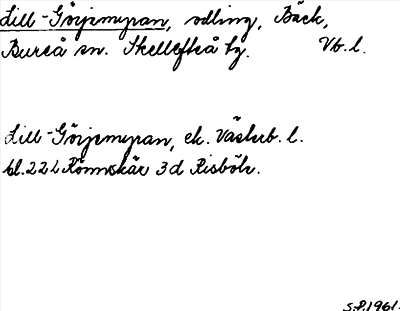 Lill-Görjemyran, odling, Bäck,
Bureå sn. Skellefteå tg. Vb.l.
Lill-Görjemyran, ek. Västerb. l.
bl. 22 L Rönnskär 3 d Risböle.
S.P. 1961.